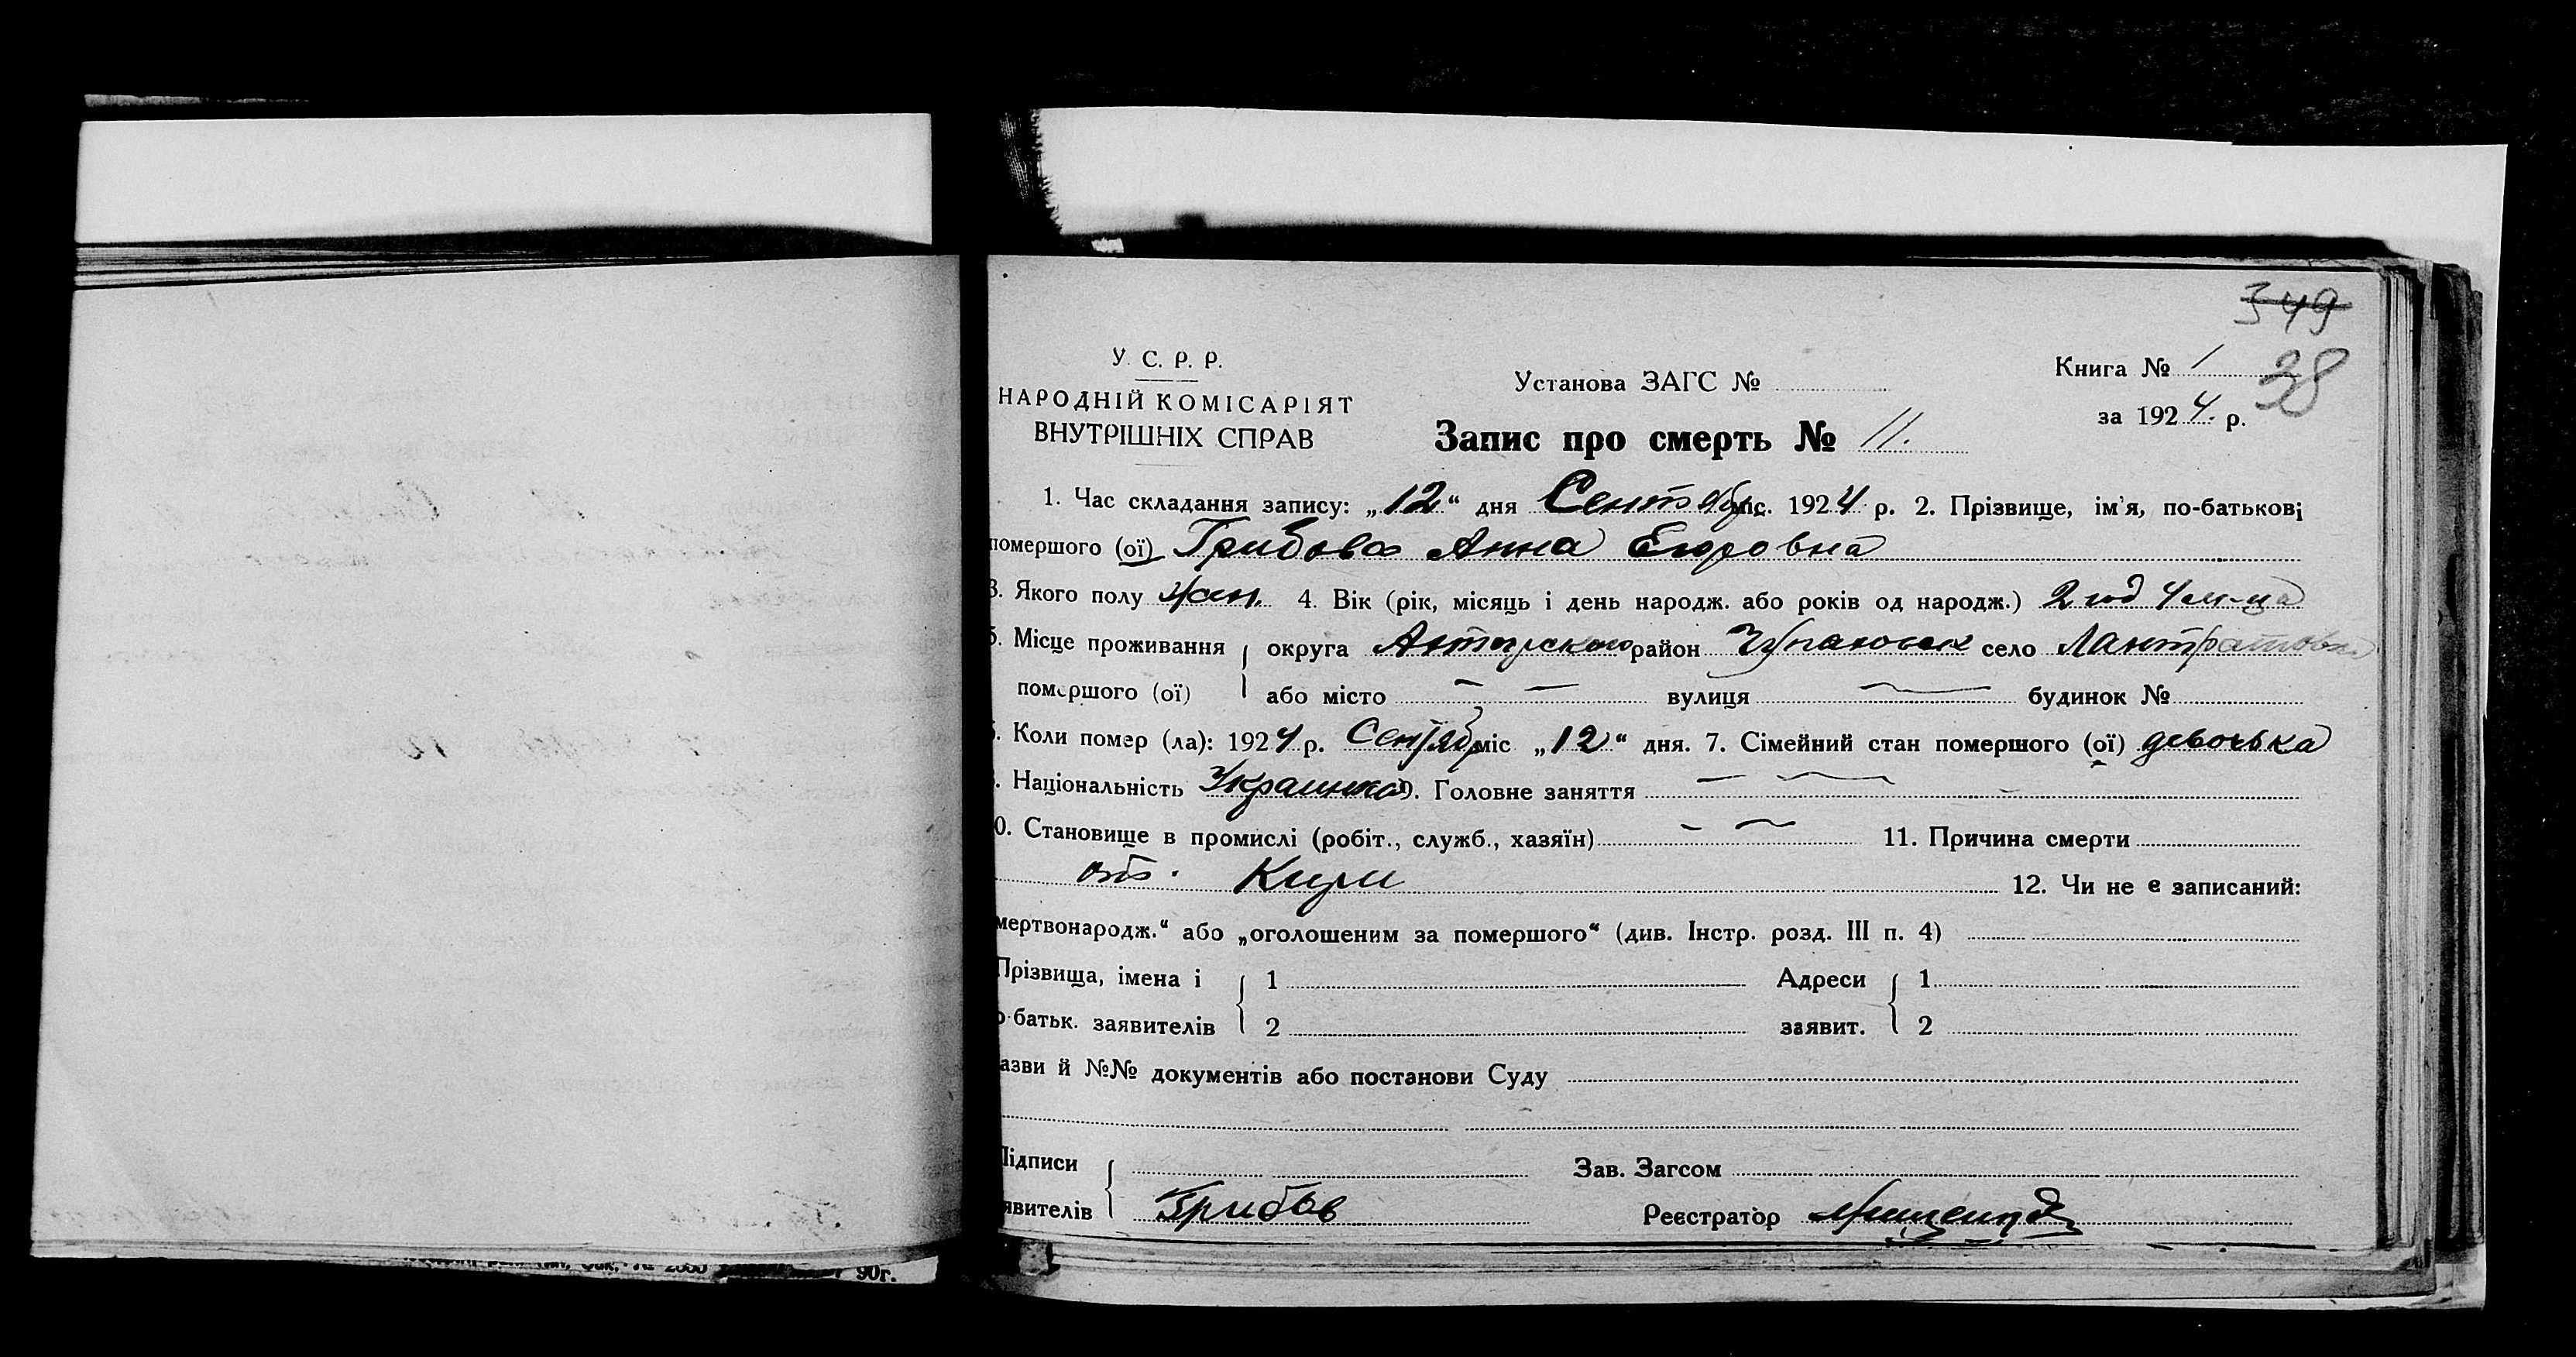 349
У. С. Р. Р.
НАРОДНІЙ КОМІСАРІЯТ
ВНУТРІШНІХ СПРАВ
Установа ЗАГС №
Книга № 1
38
за 1924 р.
Запис про смерть № 11.
1. Час складання запису: „12“ дня Сентябр міс. 1924 р. 2. Прізвище, ім'я, по-батькові
помершого (ої) Грибова Анна Егоровна
3. Якого полу жен. 4. Вік (рік, місяць і день народж. або років од народж.) 2 год 4 м-ца
5. Місце проживання округа район село
помершого (ої) або місто — — вулиця — будинок №
6. Коли помер (ла): 1924 р. Сентябр міс „12“ дня. 7. Сімейний стан помершого (ої) девочька
. Національність Украинка 9. Головне заняття — —
0. Становище в промислі (робіт., служб., хазяїн) — — 11. Причина смерти
отъ 12. Чи не є записаний:
мертвонародж.“ або „оголошеним за помершого“ (див. Інстр. розд. III п. 4)
Прізвища, імена і 1 Адреси 1
о-батьк. заявителів 2 заявит. 2
азви й №№ документів або постанови Суду
Підписи Зав. Загсом
явителів Грибов Реєстратор
90г.